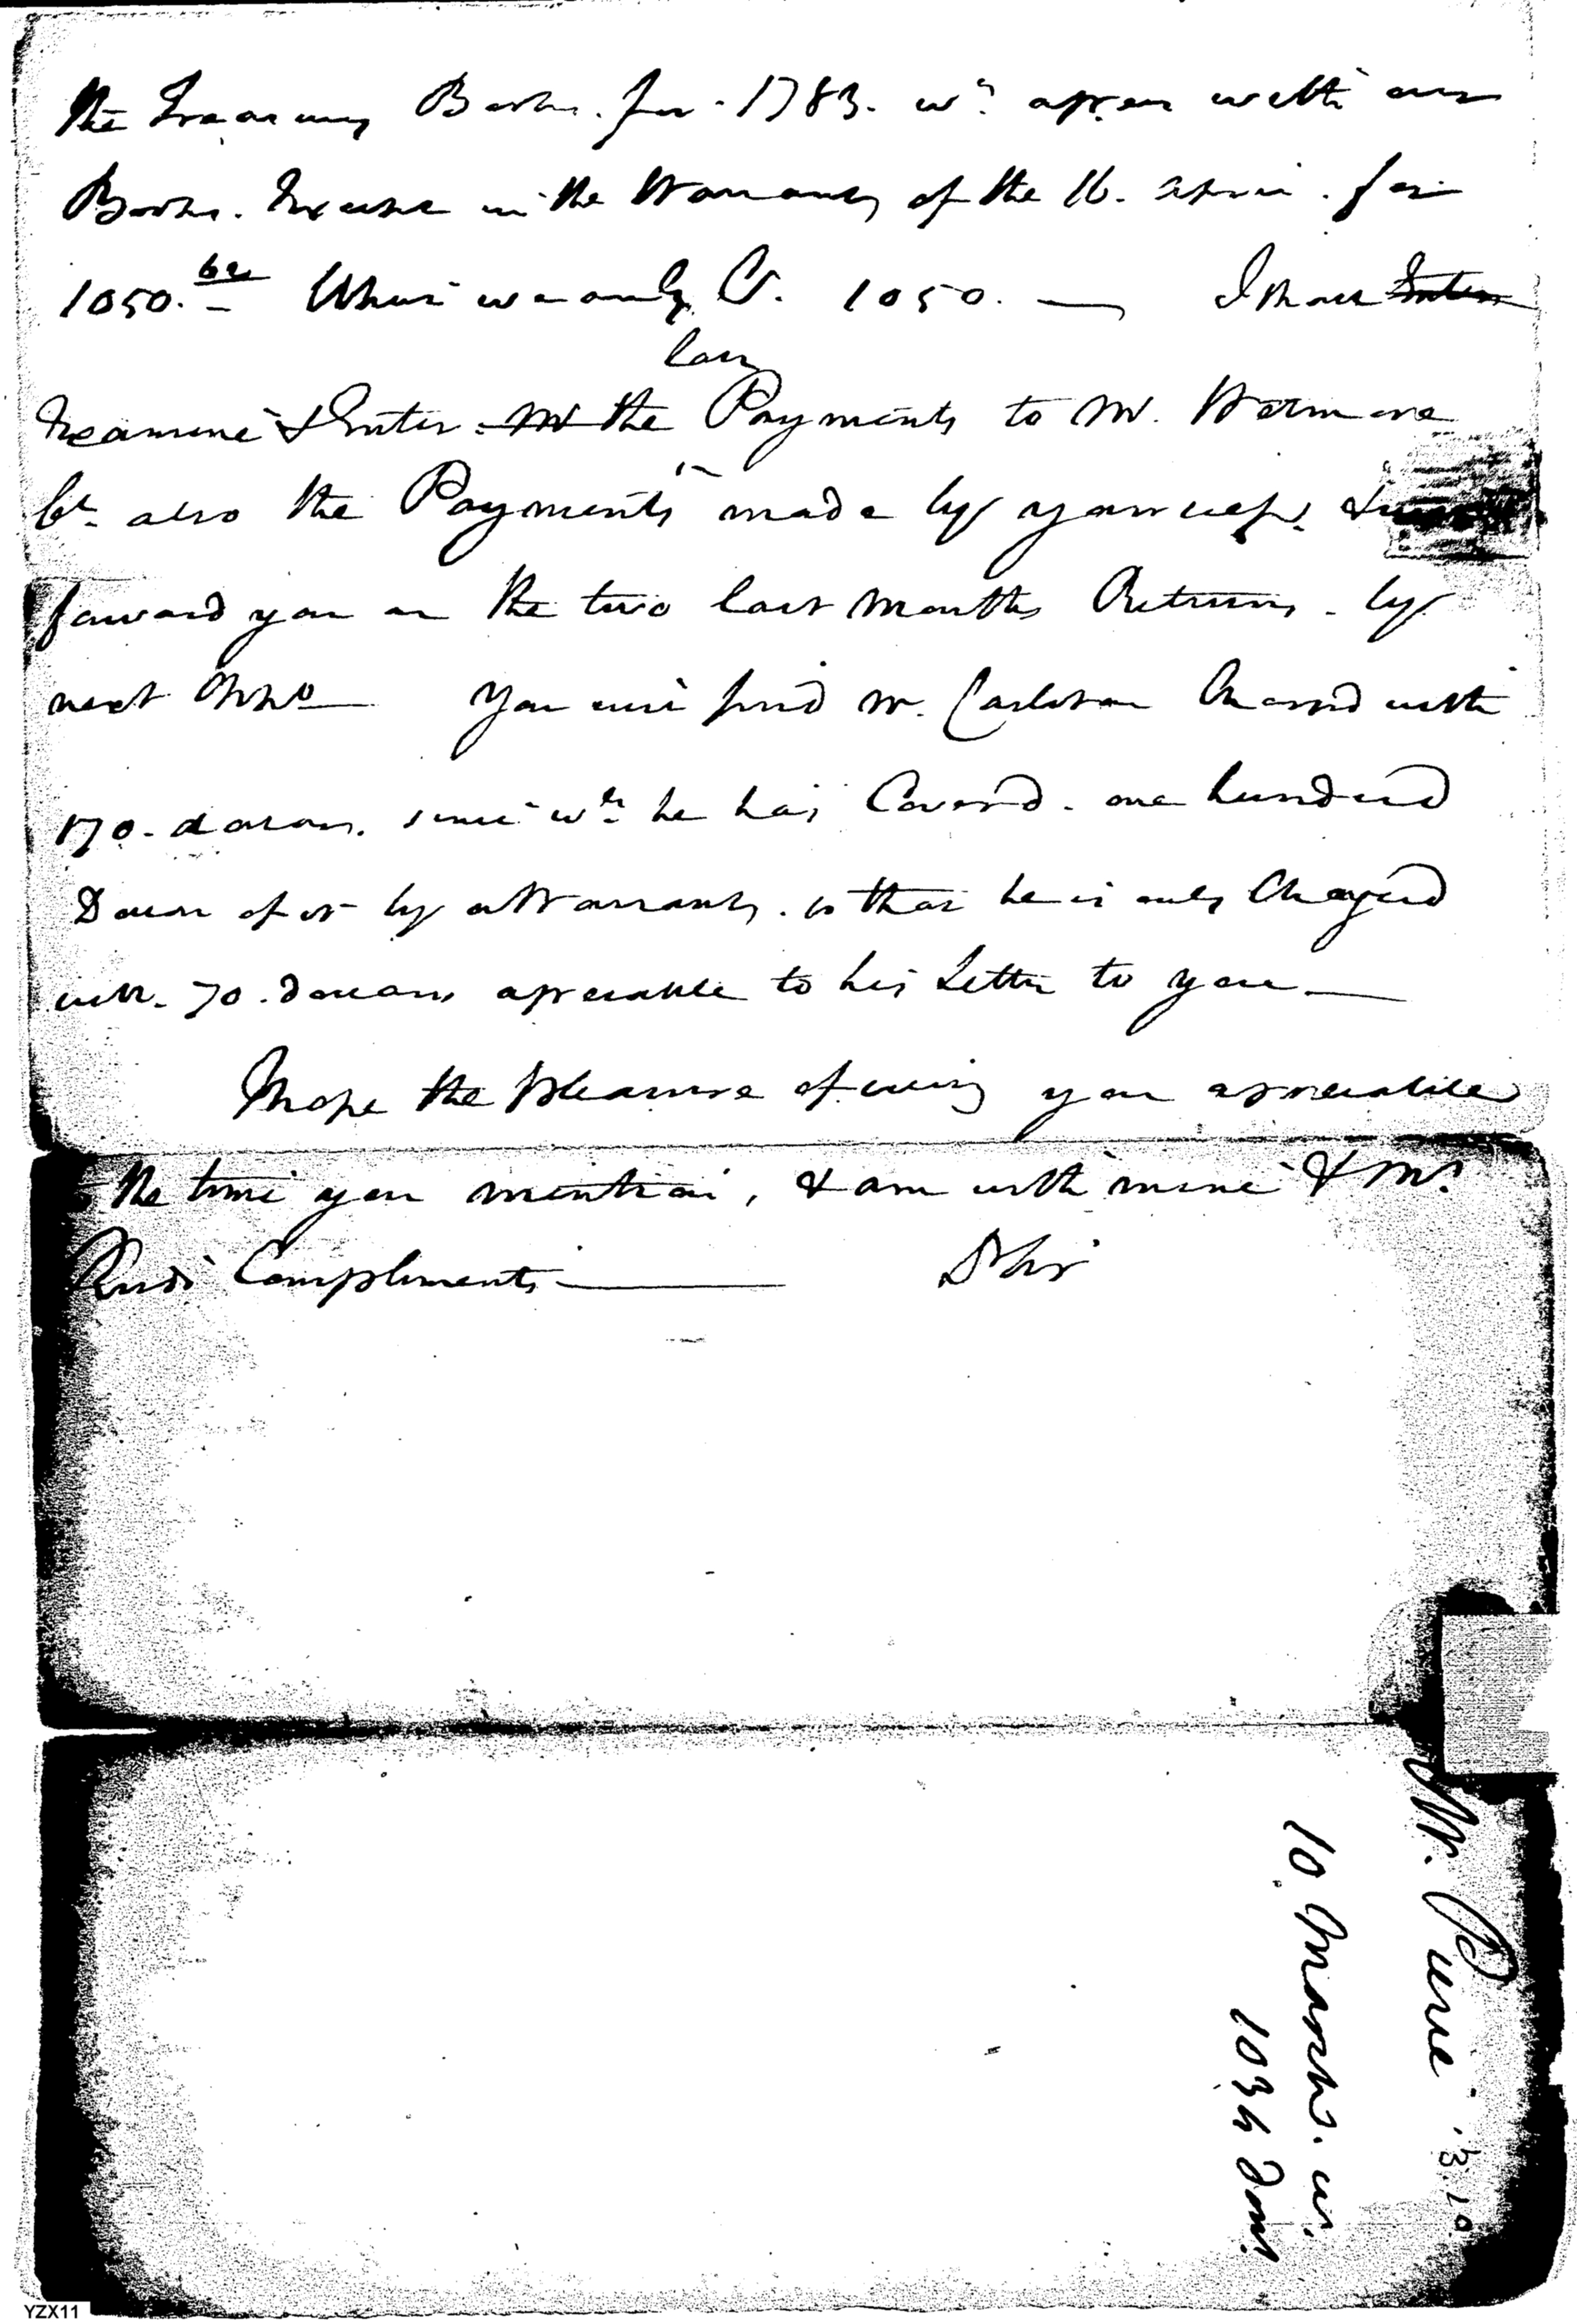 the Treasury Books. for 1783. wh. agree with our
Books. Except in the Warrant of the 16. April. for
1050. 62 Whui we only Cr. 1050. — I shall Enter
last
Examine & Enter. the Payments to Mr. Wetmore
&c. also the Payments made by yourself. &
forward you on the two last Months Returns. by
next Oppo You will find Mr. Carleton Charg'd with
170. dollars. since wh. he has Cover'd. one hundred
Dollars of it by a Warrant. so that he is only Charged
with. 70. dollars agreeable to his Letter to you —
I hope the pleasure of seeing you agreeable
the time you mention, & am with mine & Mrs.
Compliments — D Sir
Mr. Pierce
10. Months. is
YZX11